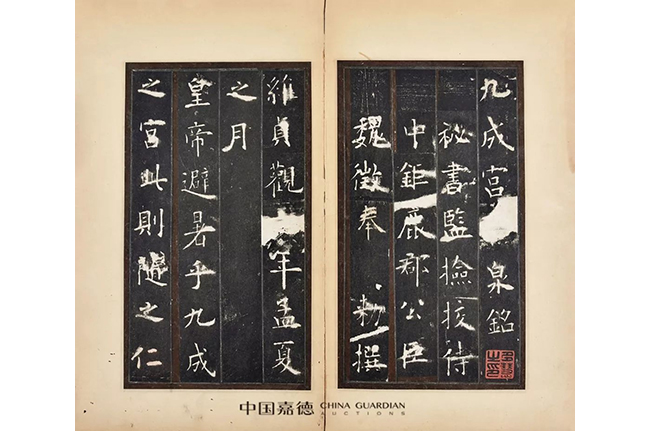 九成宮泉銘
祕書監撿挍侍
中鉅鹿郡公臣
魏徵奉 勑撰
維貞觀年孟夏
之月
皇帝避暑乎九成
之宮此則隨之仁
中国嘉德 CHINA GUARDIAN
AUCTIONS